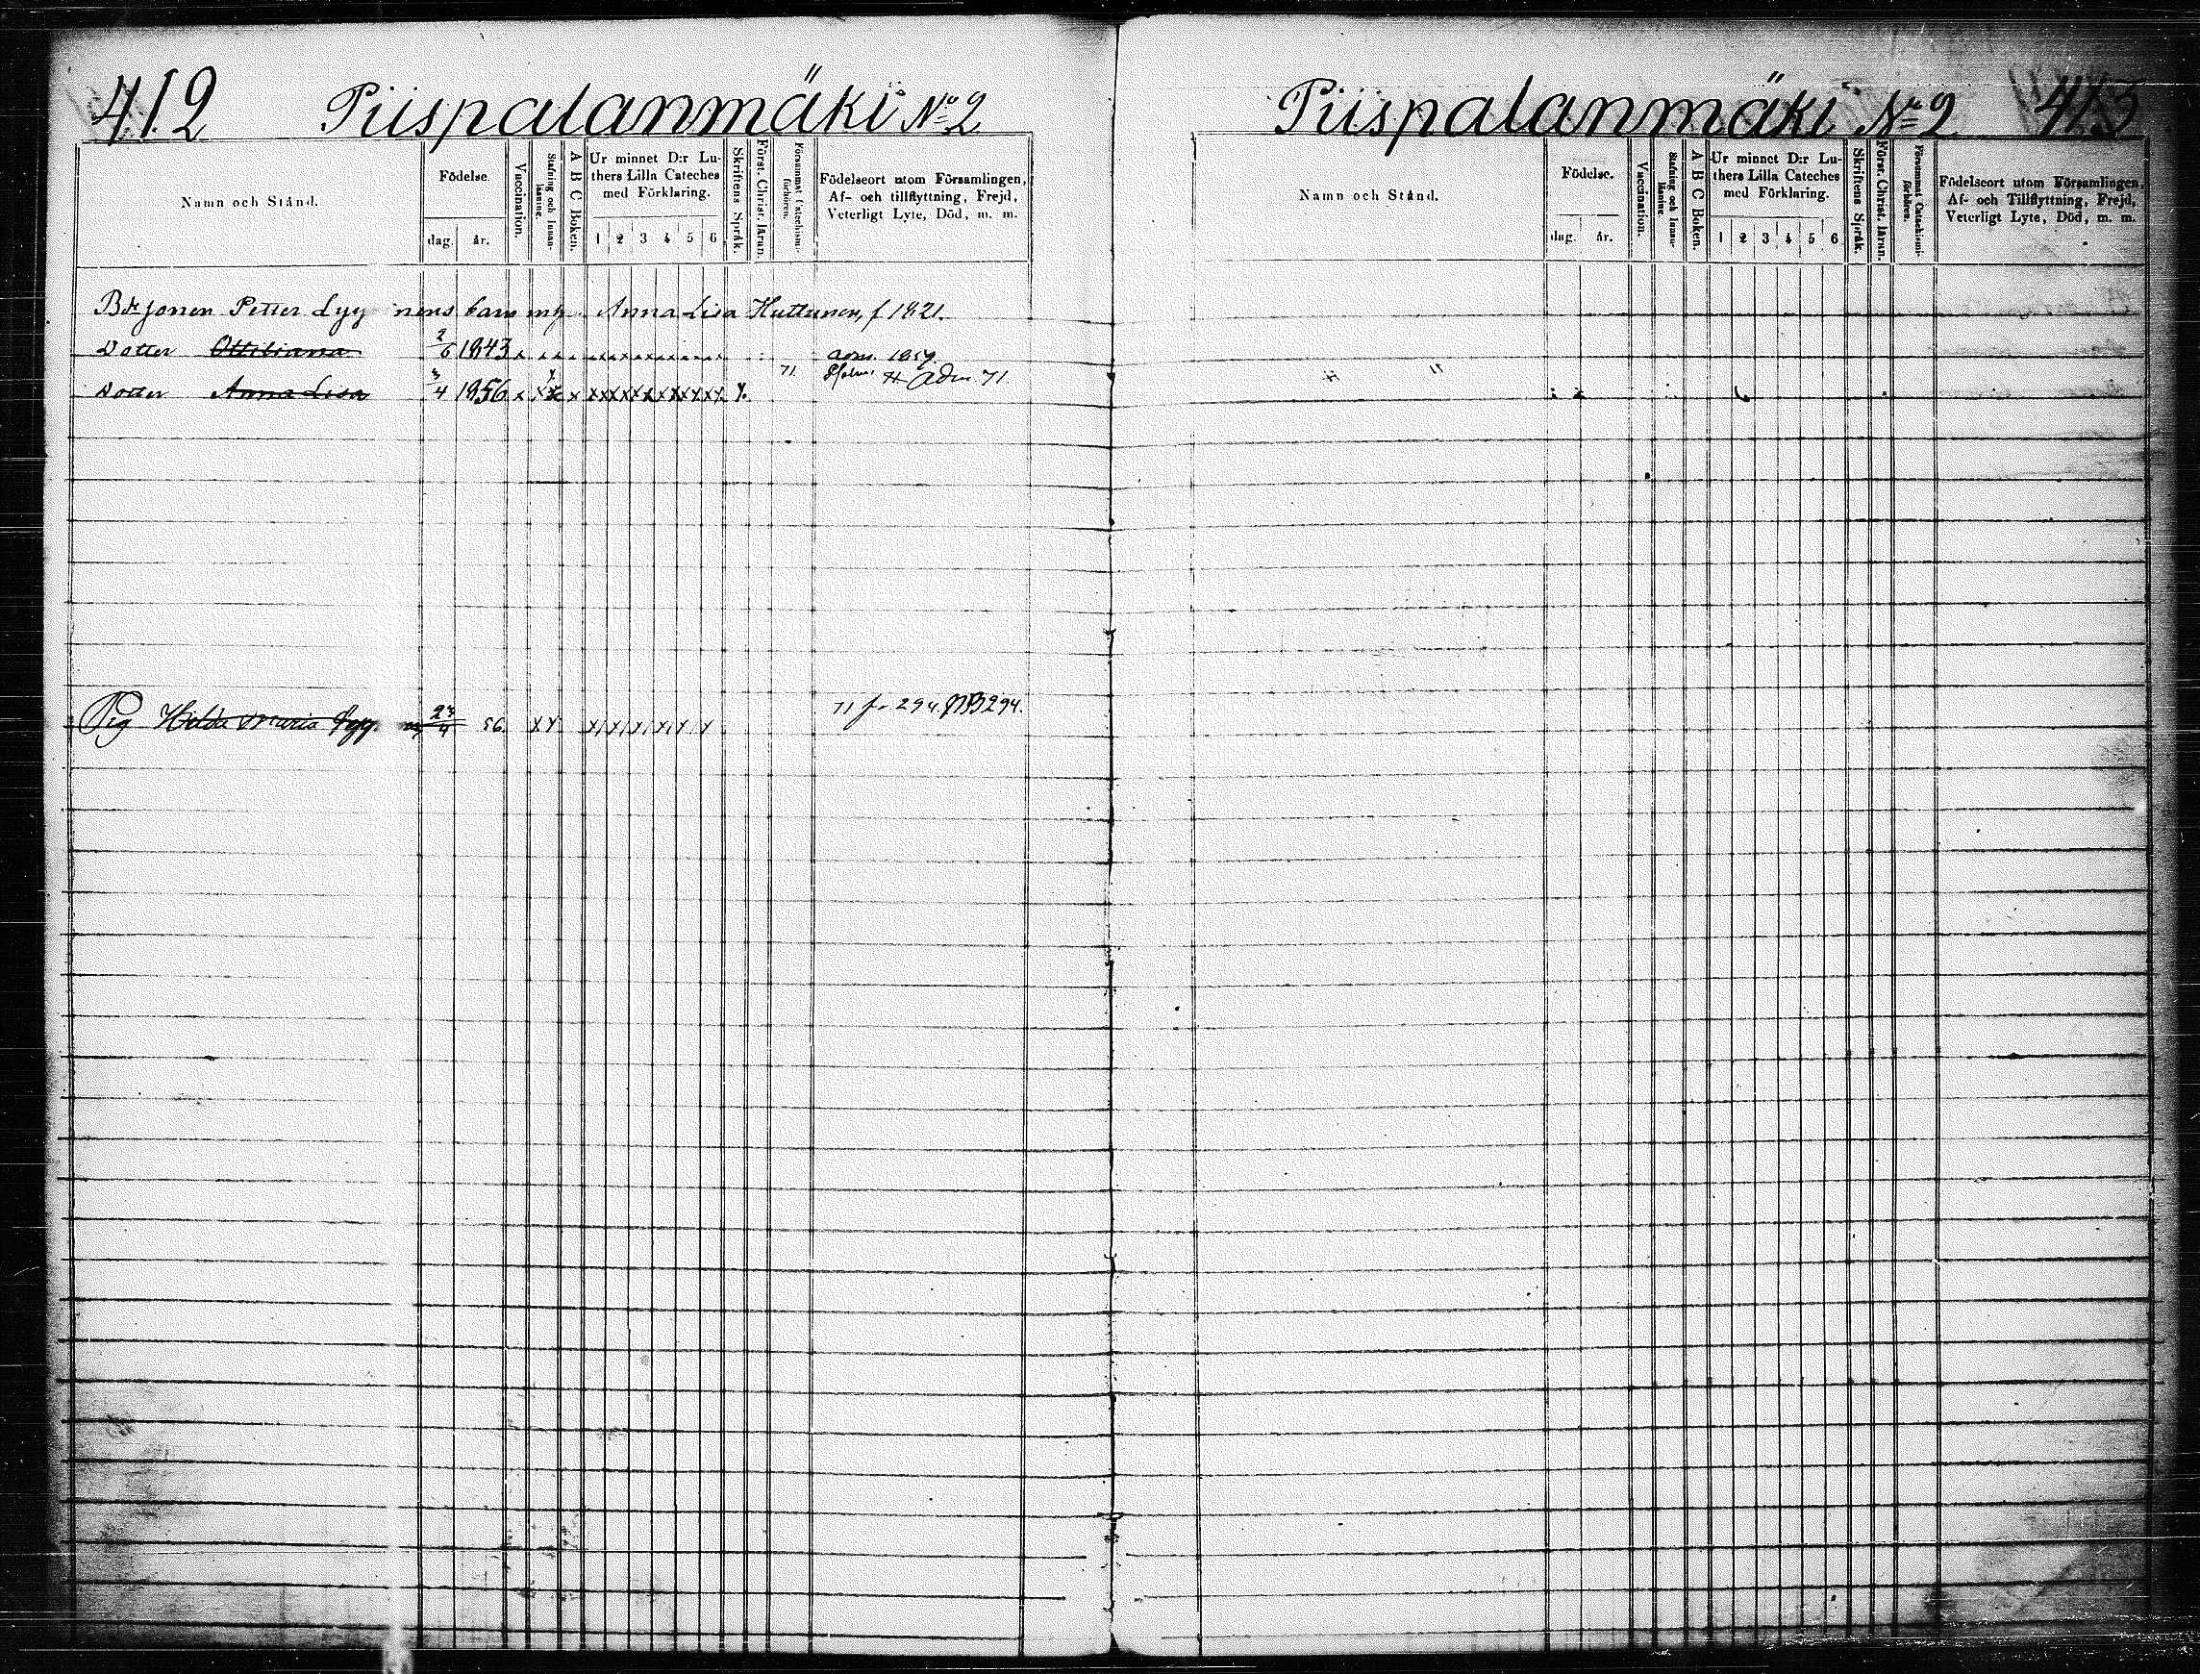 412 Piispalanmäki No 2
Namn och Stånd.
Födelse.
dag. år.
Vaccination.
Stafning och Innan-
läsning.
A B C Boken.
Ur minnet D:r Lu-
thers Lilla Cateches
med Förklaring.
1 2 3 4 5 6
Skriftens Språk.
Först. Christ. läran.
Försummat Catechismi-
förhören.
Födelseort utom Församlingen,
Af- och tillflyttning, Frejd,
Veterligt Lyte, Död, m. m.
Petter Lyy nens barn Anna Lisa Huttunen, f 1821.
Dotter Ottiliana 2/6 1843 x x x x x x x x x x x adm. 1859.
71
Dotter Anna Lisa 3/4 1856 x x x x xxxxxxxxxxxx x. Adm. 71.
Pig Hilda Maria Lyy. 23/4 56. x x x x x x x x 71 f. 294. NB 294.
Piispalanmäki No 2 413
Namn och Stånd.
Födelse.
dag. år.
Vaccination.
Stafning och Innan-
läsning
A B C Boken.
Ur minnet D:r Lu-
thers Lilla Cateches
med Förklaring.
1 2 3 4 5 6
Skriftens Språk.
Först. Christ. läran.
Försummat Catechismi-
förhören.
Födelseort utom Församlingen,
Af- och Tillflyttning, Frejd,
Veterligt Lyte, Död, m. m.